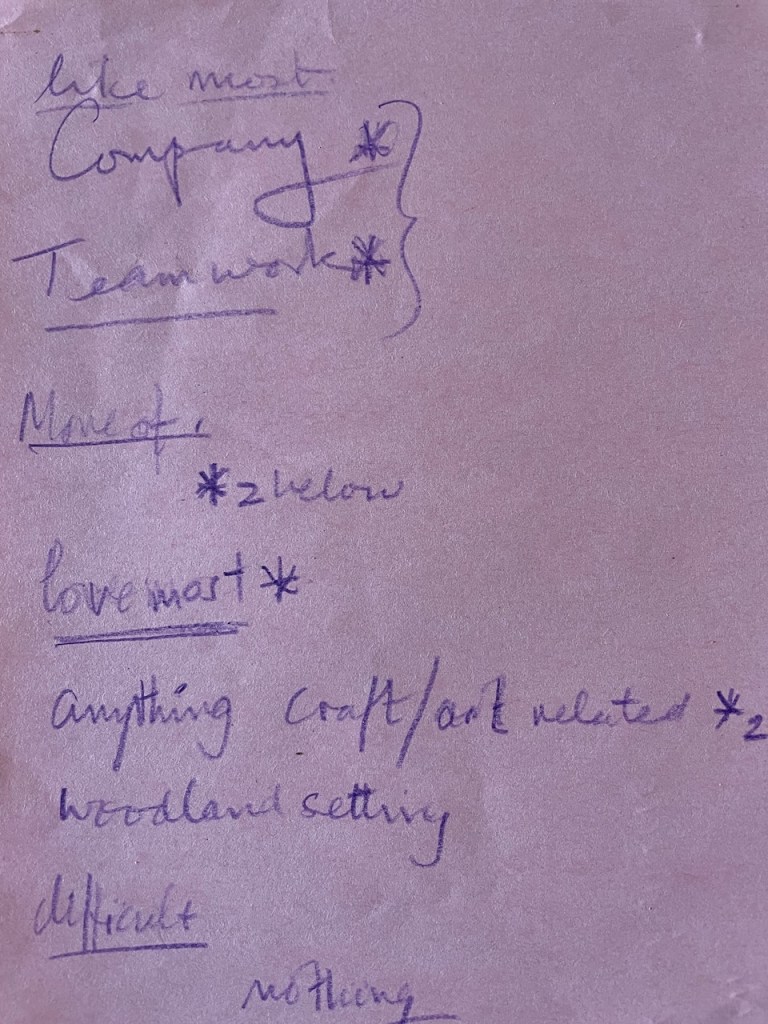 like most
Company *
Teamwork *
More of.
*2 below
love most *
anything craft/art related *2
woodland setting
difficult
nothing